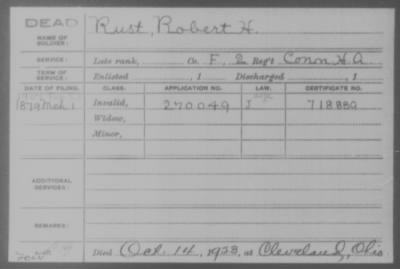 DEAD
NAME OF SOLDIER:
Rust, Robert H.
SERVICE:
Late rank, Co. F, 2 Reg't Conn H.A.
TERM OF SERVICE:
Enlisted , 1 Discharged , 1
DATE OF FILING. CLASS. APPLICATION NO. LAW. CERTIFICATE NO.
1879 Mch 1 Invalid, 270049 718889
Widow,
Minor,
ADDITIONAL SERVICES:
REMARKS:
Died Oct. 14, 1923, at Cleveland, Ohio